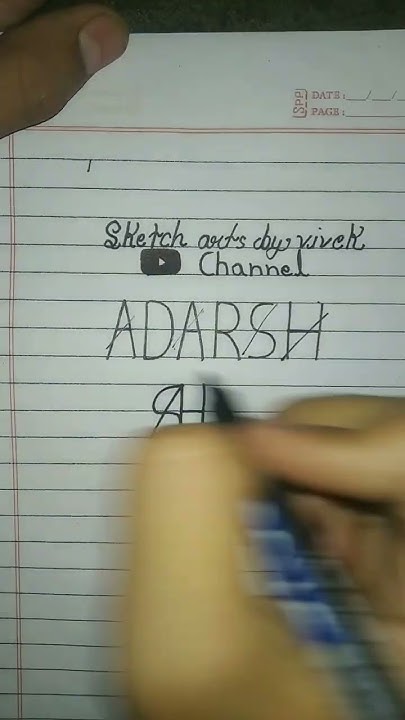 SPP DATE:__/__/__
PAGE:______
Sketch arts by vivek
Channel
ADARSH